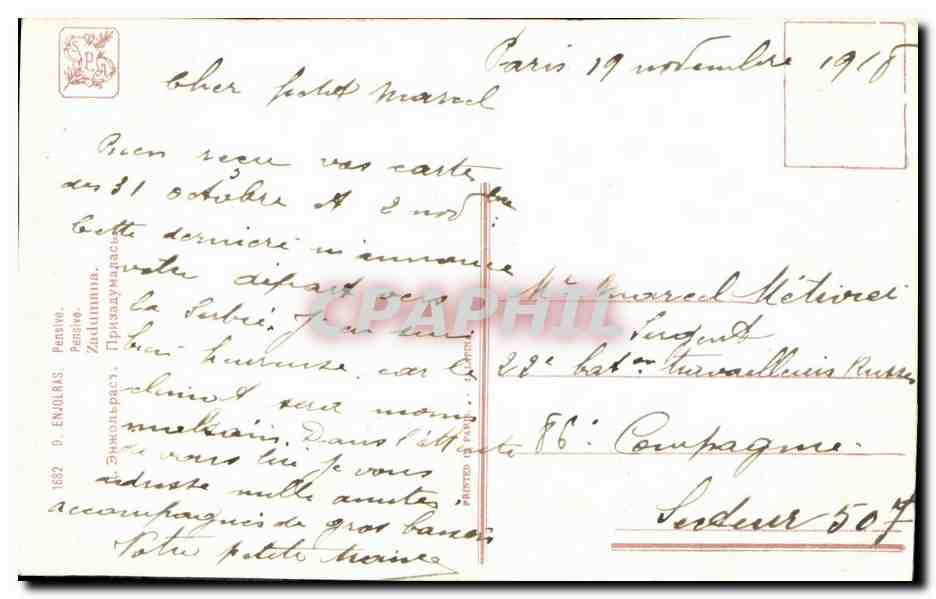 SPA
Paris 19 novembre 1918
Cher petit Marcel
Bien reçu vos cartes
des 31 octobre et 2 novbre
Cette dernière m'annonce
votre départ vers
la Serbie. J'en suis
bien heureuse car le
climat sera moins
malsain. Dans l'attente
de vous lire je vous
adresse mille amitiés
accompagnés de gros baisers
Votre petite
Mr Marcel
Sergent
22e baton travailleurs Russes
86e Compagnie
Secteur 507
1682 D. ENJOLRAS. Pensive.
Pensive.
Zadumana.
Д. Энжольрасъ. Призадумалась.
PRINTED IN PARIS LAPINA
CPAPHIL